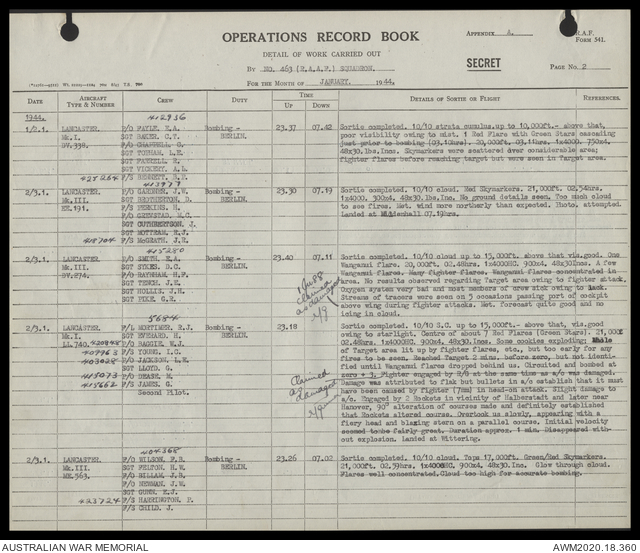 OPERATIONS RECORD BOOK
APPENDIX A.
R.A.F. FORM 541.
DETAIL OF WORK CARRIED OUT
BY NO. 463 (R.A.A.F.) SQUADRON.
SECRET
PAGE NO. 2
FOR THE MONTH OF JANUARY, 1944.
DATE AIRCRAFT TYPE & NUMBER CREW DUTY TIME UP DOWN DETAILS OF SORTIE OR FLIGHT REFERENCES.
1944.
412956
1/2.1. LANCASTER P/O FAYLE, E.A. Bombing - 23.37 07.42 Sortie completed. 10/10 strato cumulus, up to 10,000ft.- above that,
Mk.I. SGT BAKER, C.T. BERLIN. poor visibility owing to mist. 1 Red Flare with Green Stars cascading
DV.338. F/O CHAPPELL, G. just prior to bombing (03.10hrs). 20,000ft. 03.11hrs. 1x4000. 750x4,
SGT TOPHAM, L.E. 48x30.lbs.Incs. Skymarkers were scattered over considerable area;
SGT FARRELL, R. fighter flares before reaching target but were seen in Target area.
SGT VICKERY, A.L.
F/S BENNETT, R.F.
413977
2/3.1. LANCASTER P/O GARDNER, J.W. Bombing - 23.30 07.19 Sortie completed. 10/10 cloud. Red Skymarkers. 21,000ft. 02.54hrs.
Mk.III. SGT BROTHERTON, D. BERLIN. 1x4000. 300x4, 48x30.lbs.Inc. No ground details seen. Too much cloud
EE.191. F/S PERKINS, H. to see fires. Met. wind more northerly than expected. Photo. attempted.
F/O GRUMSTAD, H.C. Landed at Mildenhall 07.19hrs.
SGT CUTHBERTSON, J.
SGT MOTTRAM, R.J.
418704 F/S McGRATH, J.R.
415280
2/3.1. LANCASTER P/O SMITH, E.A. Bombing - 23.40 07.11 Sortie completed. 10/10 cloud up to 15,000ft. above that vis.good. One
Mk.III. SGT SYKES, D.C. BERLIN. Wanganui flare. 20,000ft. 02.48hrs. 1x4000HC. 900x4, 48x30Incs. A few
DV.274. F/O RAYNHAM, H.F. Wanganui flares. Many fighter flares. Wanganui flares concentrated in
SGT TENCH, J.E. area. No results observed regarding Target area owing to fighter attack.
SGT HOLLIS, J.H. Oxygen system very bad and most members of crew sick owing to lack.
SGT FIKE, G.E. Streams of tracers were seen on 5 occasions passing port of cockpit
above wing during fighter attacks. Met. forecast quite good and no
icing in cloud.
1 Ju88 claimed as damaged
5684
2/3.1. LANCASTER F/L MORTIMER, R.J. Bombing - 23.18 Sortie completed. 10/10 S.C. up to 15,000ft.- above that, vis.good
Mk.I. SGT EVERARD, H. BERLIN. owing to starlight. Centre of about 7 Red Flares (Green Stars). 21,000
LL.740. 420848 F/O BAGGIE, W.J. 02.48hrs. 1x4000HC. 900x4, 48x30.Incs. Some cookies exploding; While
407963 F/S YOUNG, I.C. of Target area lit up by fighter flares, etc., but too early for any
403028 F/O JACKSON, L.E. fires to be seen. Reached Target 2 mins. before zero, but not identi-
SGT LLOYD, G. fied until Wanganui flares dropped behind us. Circuited and bombed at
415073 F/O DEASE, M. zero + 3. Fighter engaged by R/G at the same time as a/c was damaged.
415662 F/S JAMES, G. Damage was attributed to flak but bullets in a/c establish that it must
Second Pilot. have been caused by fighter (7mm) in head-on attack. Slight damage to
a/c. Engaged by 2 Rockets in vicinity of Halberstadt and later near
Hanover, 90° alteration of courses made and definitely established
that Rockets altered course. Overtook us slowly, appearing with a
fiery head and blazing stern on a parallel course. Initial velocity
seemed to be fairly great. Duration approx. 1 min. Disappeared with-
out explosion. Landed at Wittering.
Claimed as damaged
404368
2/3.1. LANCASTER F/O WILSON, P.B. Bombing - 23.26 07.02 Sortie completed. 10/10 cloud. Tops 17,000ft. Green/Red Skymarkers.
Mk.III. SGT FELTON, H.W. BERLIN. 21,000ft. 02.59hrs. 1x4000HC, 900x4, 48x30.Inc. Glow through cloud.
ME.563. F/O GILLAM, J.B. Flares well concentrated.Cloud too high for accurate bombing.
F/O NEWMAN, J.W.
SGT GUNN, E.J.
423724 F/S HARRINGTON, P.
F/S CHILD, J.
AUSTRALIAN WAR MEMORIAL
AWM2020.18.360